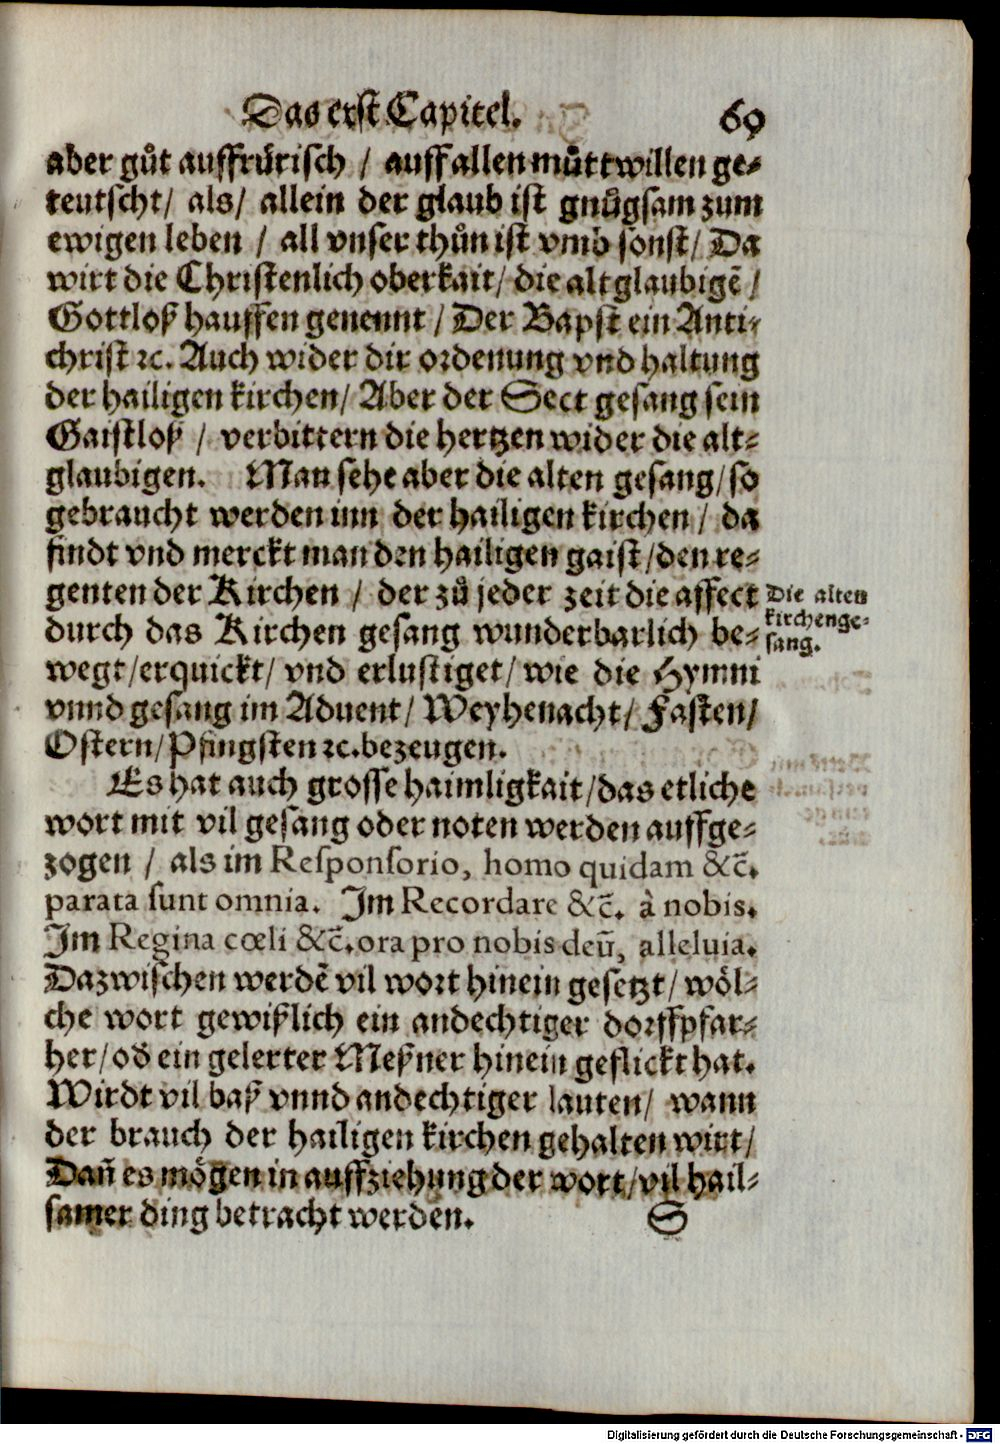 Das erst Capitel. 69
aber gůt auffrürisch / auff allen můttwillen ge-
teutscht/ als/ allein der glaub ist gnůgsam zum
ewigen leben / all vnser thůn ist vmb sonst/ Da
wirt die Christenlich oberkait/ die altglaubigẽ /
Gottloß hauffen genennt / Der Bapst ein Anti-
christ ꝛc. Auch wider dir ordenung vnd haltung
der hailigen kirchen/ Aber der Sect gesang sein
Gaistloß / verbittern die hertzen wider die alt-
glaubigen. Man sehe aber die alten gesang/ so
gebraucht werden inn der hailigen kirchen / da
findt vnd merckt man den hailigen gaist/ den re-
genten der Kirchen / der zů jeder zeit die affect
durch das Kirchen gesang wunderbarlich be-
wegt/ erquickt/ vnd erlustiget/ wie die Hymni
vnnd gesang im Aduent/ Weyhenacht/ Fasten/
Ostern/ Pfingsten ꝛc. bezeugen.
Die alten
kirchenge-
sang.
Es hat auch grosse haimligkait/ das etliche
wort mit vil gesang oder noten werden auffge-
zogen / als im Responsorio, homo quidam &c̄.
parata sunt omnia. Im Recordare &c̄. à nobis.
Im Regina cœli &c̄. ora pro nobis deū, alleluia.
Dazwischen werdẽ vil wort hinein gesetzt/ wöl-
che wort gewißlich ein andechtiger dorffpfar-
her/ od ein gelerter Meßner hinein geflickt hat.
Wirdt vil baß vnnd andechtiger lauten/ wann
der brauch der hailigen kirchen gehalten wirt/
Dañ es mögen in auffziehung der wort/ vil hail-
samer ding betracht werden. S
Digitalisierung gefördert durch die Deutsche Forschungsgemeinschaft - DFG